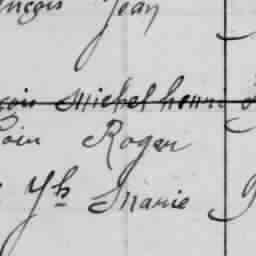 nçois Jean
çois Michel henri
Roger
Yh Marie